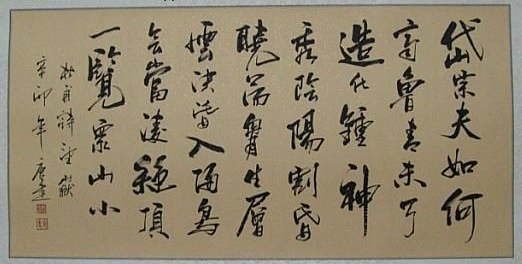 岱宗夫如何
齊魯青未了
造化鍾神
秀陰陽割昏
曉盪胷生層
雲決眥入歸鳥
會當凌絕頂
一覽眾山小
杜甫詩望嶽
辛卯年